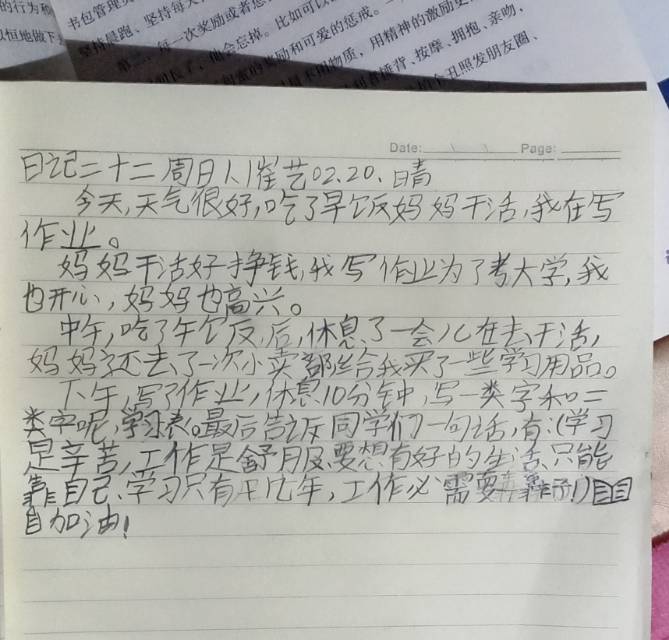 的行为和
以恒地做下
书包管理员
坚持晨跑、坚持每天
每一次奖励或者惩
他会忘掉。比如可以
奖励和可爱的惩戒。
用物质，用精神的激励
捶背、按摩、拥抱、亲吻、
丑照发朋友圈、
Date: \ \ Page:
日记二十二 周日 崔艺02.20.晴
今天,天气很好,吃了早饭妈妈干活,我在写
作业。
妈妈干活好挣钱,我写作业为了考大学,我
也开心,妈妈也高兴。
中午,吃了午饭,后,休息了一会儿在去干活,
妈妈还去了一次小卖部给我买了一些学习用品。
下午,写了作业,休息10分钟,写一类字和二
类字呢,学习表。最后告诉同学们一句话,有:(学习
是辛苦,工作是舒服,要想有好的生活、只能
靠自己、学习只有几年,工作必需要靠
自加油!